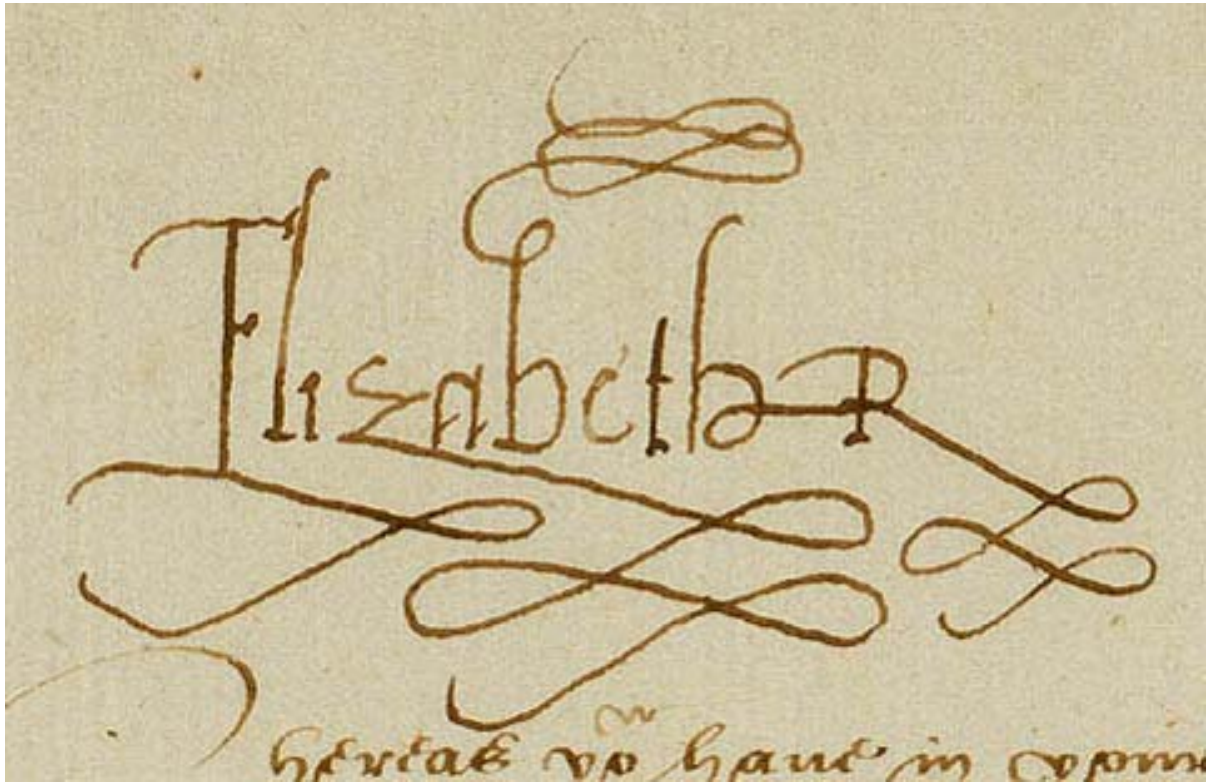 Elizabeth R
hereas yo have in